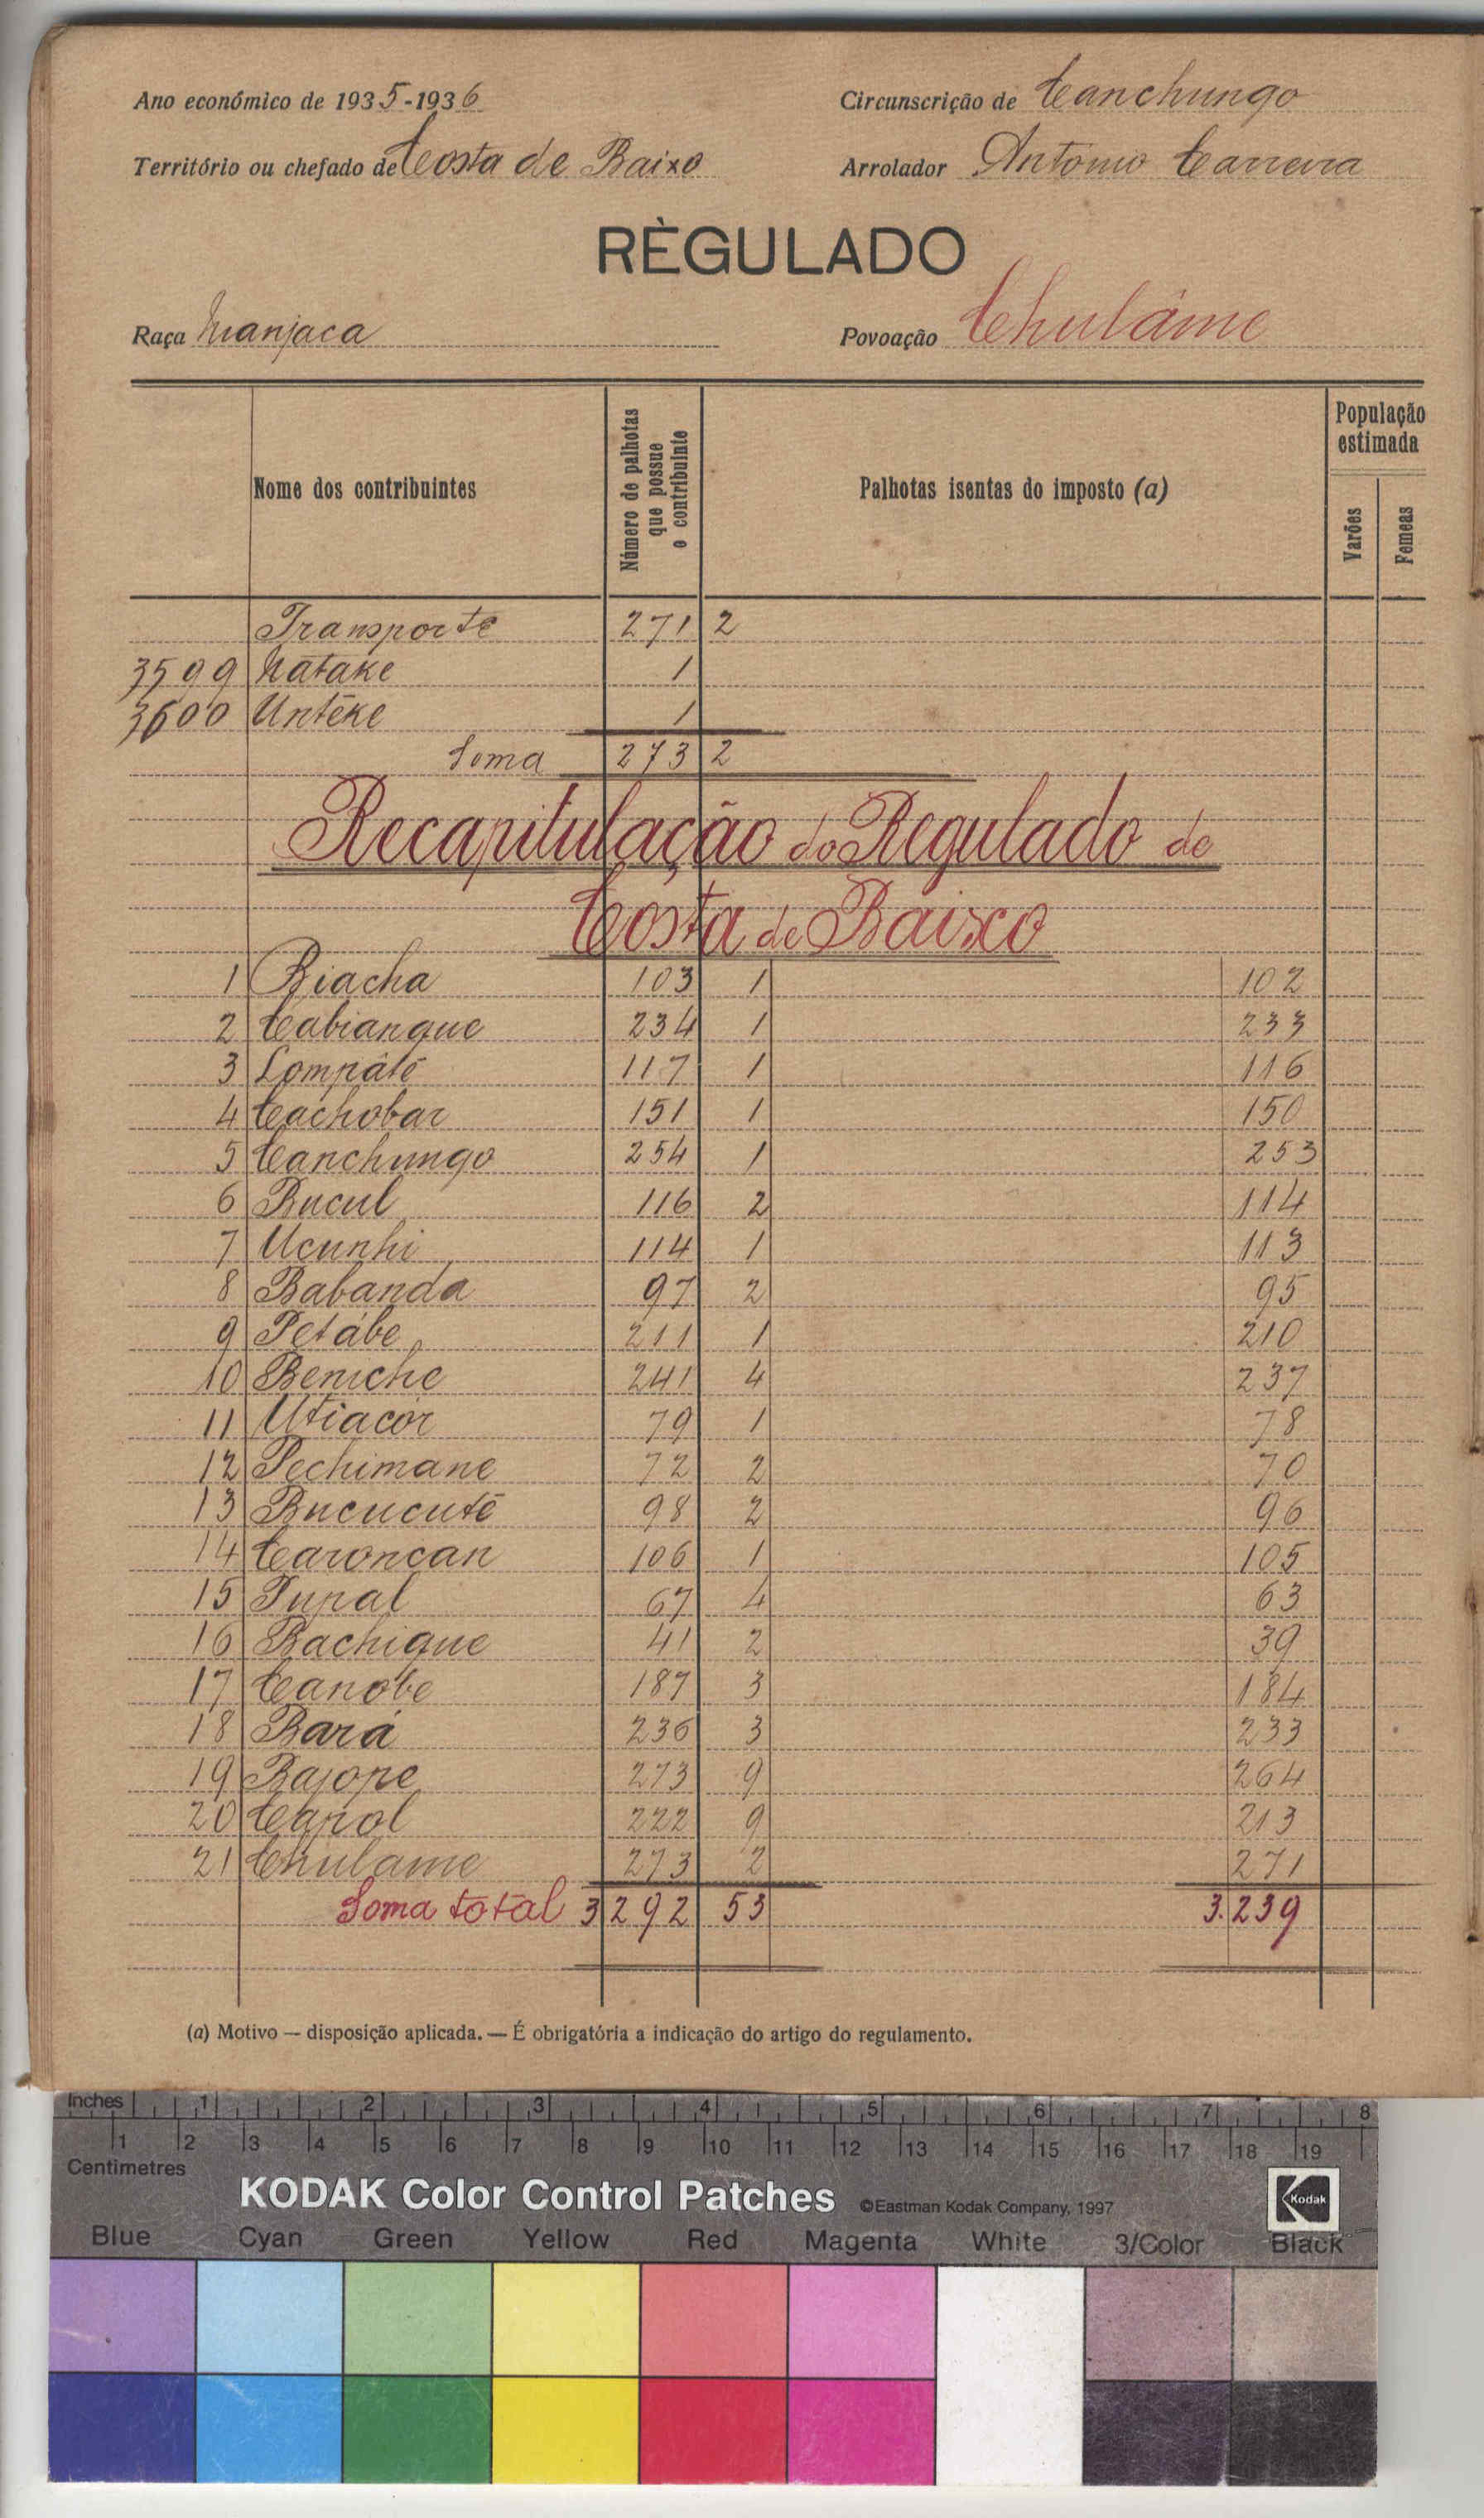 Ano económico de 1935-1936
Circunscrição de Canchungo
Território ou chefado de Costa de Baixo
Arrolador António Carreira
RÈGULADO
Raça Manjaca
Povoação Chulâme
Nome dos contribuintes
Número de palhotas que possue o contribuinte
Palhotas isentas do imposto (a)
População estimada
Varões
Femeas
Transporte 271 2
3599 Natake 1
3600 Untéke 1
Soma 273 2
Recapitulação do Regulado de
Costa de Baixo
1 Biacha 103 1 102
2 Cabianque 234 1 233
3 Lompátê 117 1 116
4 Cachobar 151 1 150
5 Canchungo 254 1 253
6 Bucul 116 2 114
7 Ucunhi 114 1 113
8 Babanda 97 2 95
9 Petábe 211 1 210
10 Beniche 241 4 237
11 Utiacór 79 1 78
12 Pechimane 72 2 70
13 Bucucutê 98 2 96
14 Caroncan 106 1 105
15 Tupal 67 4 63
16 Bachique 41 2 39
17 Canobe 187 3 184
18 Bará 236 3 233
19 Bajope 273 9 264
20 Capol 222 9 213
21 Chulame 273 2 271
Soma total 3292 53 3.239
(a) Motivo — disposição aplicada. — É obrigatória a indicação do artigo do regulamento.
Inches 1 2 3 4 5 6 7 8
1 2 3 4 5 6 7 8 9 10 11 12 13 14 15 16 17 18 19
Centimetres
KODAK Color Control Patches ©Eastman Kodak Company, 1997 Kodak
Blue Cyan Green Yellow Red Magenta White 3/Color Black